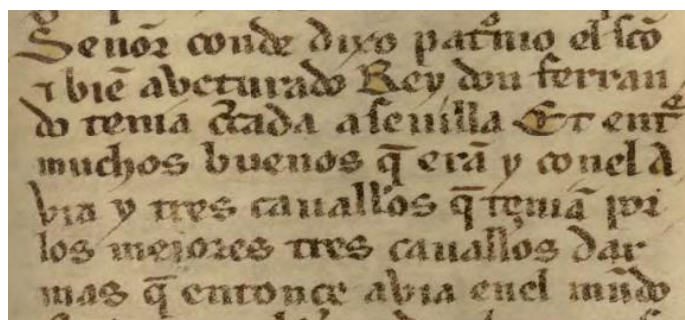 Senor conde dixo patͬnio el sco̅
⁊ bie̅ abeturado Rey don ferran
do tenia cͬcada a seuilla Et entͬe
muchos buenos q̅ era̅ y conel a
bia y tres cauallos q̅ tenia̅ por
los mejores tres cauallos dar
mas q̅ entonce abia enel mu̅do